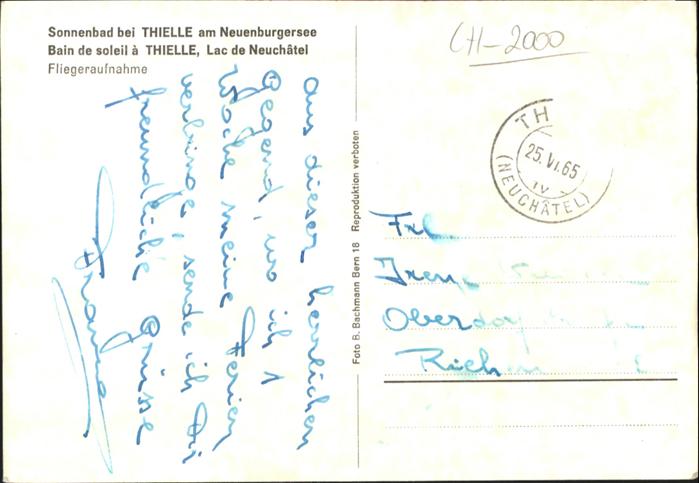 Sonnenbad bei THIELLE am Neuenburgersee
Bain de soleil à THIELLE, Lac de Neuchâtel
Fliegeraufnahme
aus dieser herrlichen
Gegend, wo ich 1
Woche meine Ferien
verbringe, sende ich Dir
freundliche Grüsse
Foto B. Bachmann Bern 18 Reproduktion verboten
CH-2000
TH
25.VI.65
IV
(NEUCHÂTEL)
Frl.
Oberdorf